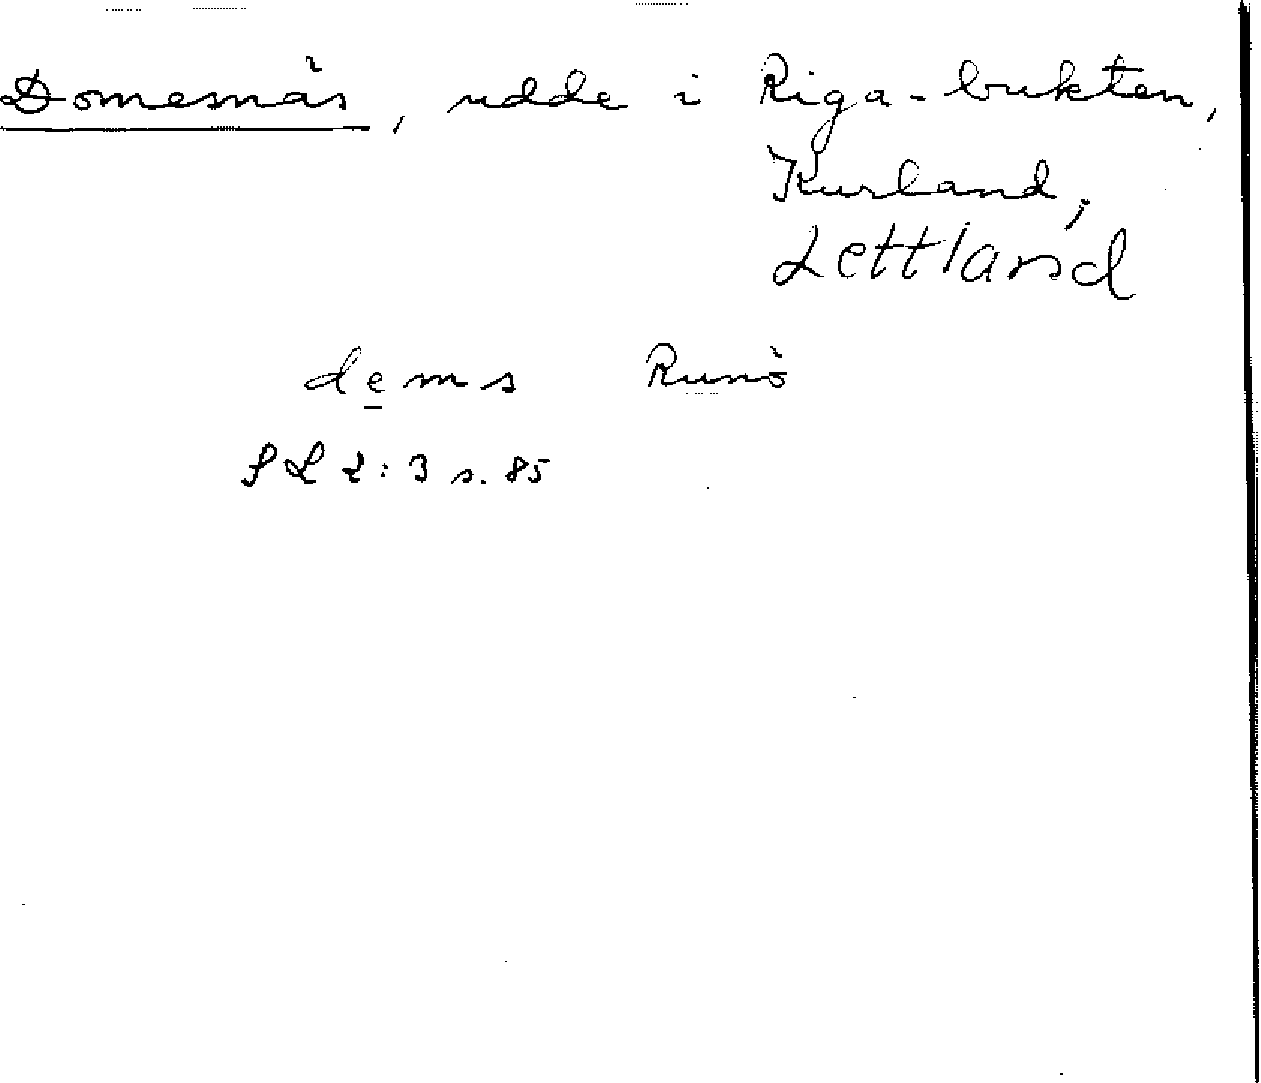 Domesnäs, udde i Riga-bukten,
Kurland,
Lettland
dems Runö
SL 2:3 s. 85